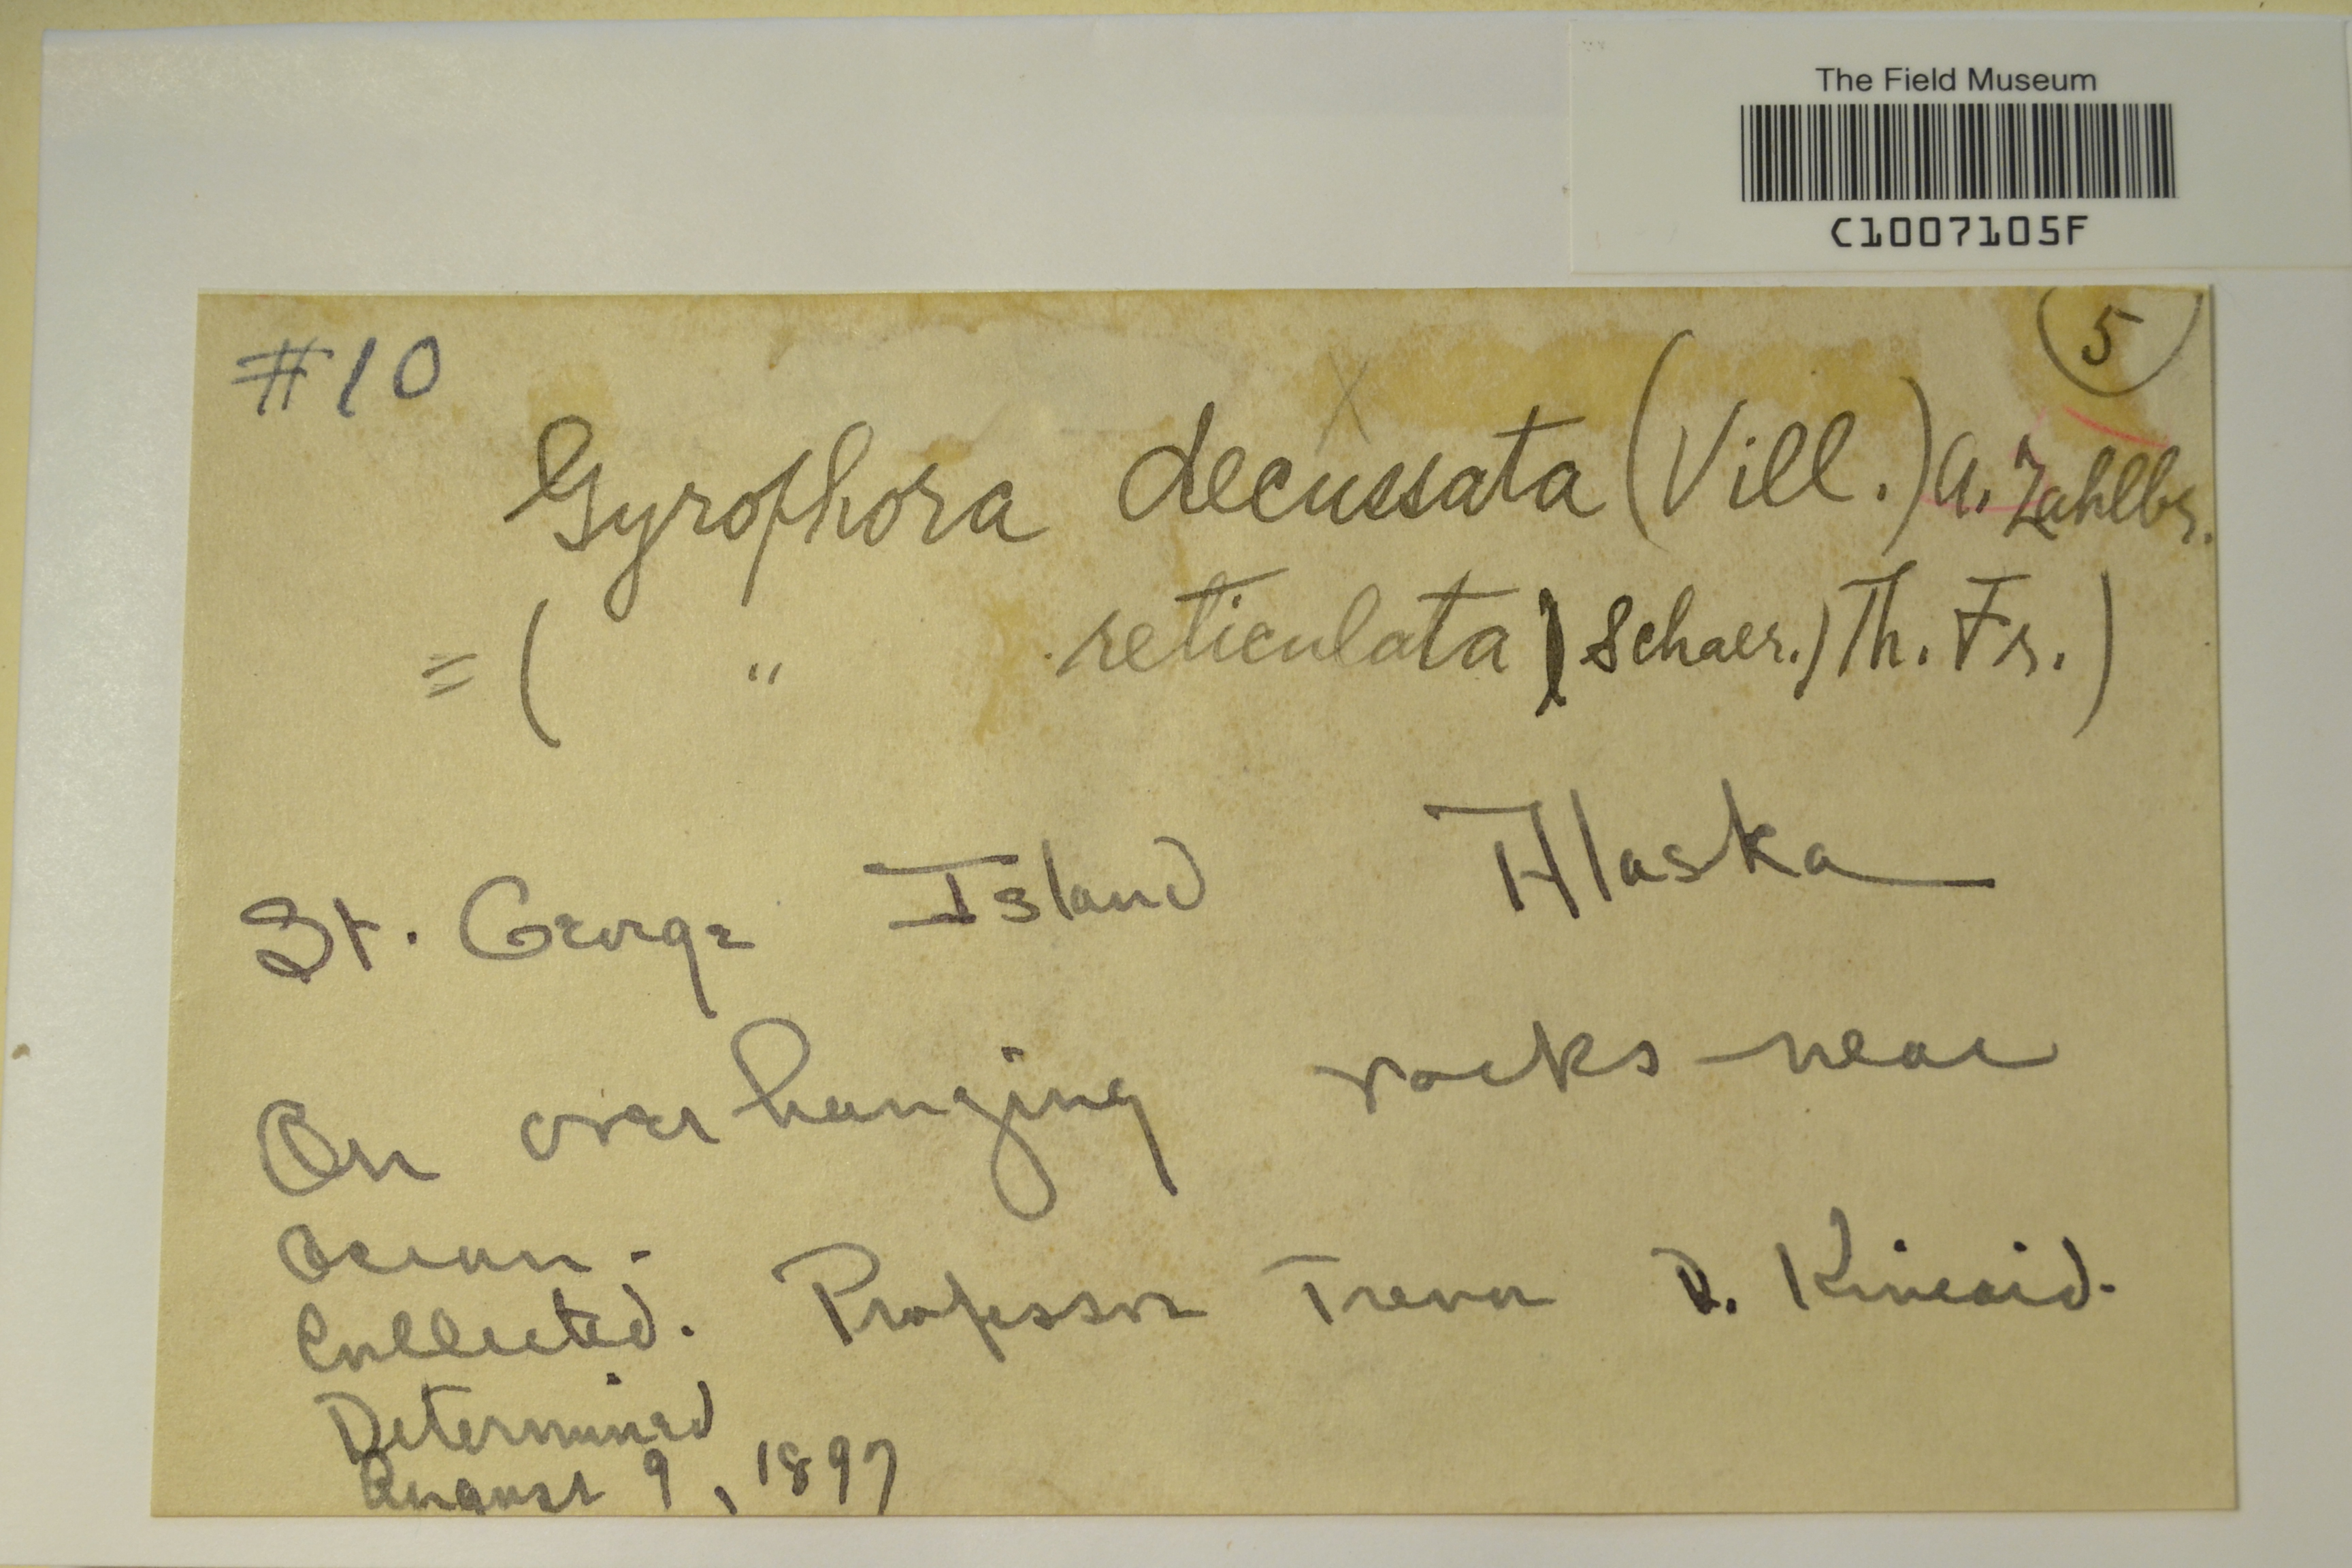 The Field Museum
C1007105F
#10
5
Gyrophora decussata (Vill.) A. Zahlbr.
= ( " reticulata (Schaer.) Th. Fr.)
St. George Island Alaska
On overhanging rocks near
ocean.
Collected. Professor Trevor D. Kincaid.
Determined
August 9, 1897